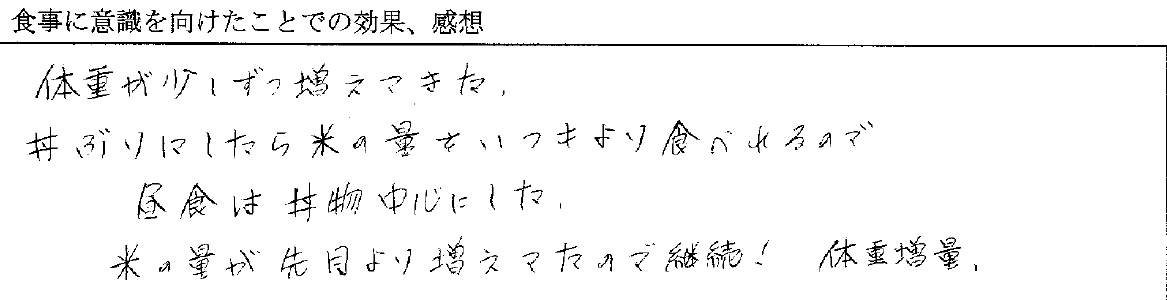 食事に意識を向けたことでの効果、感想
体重が少しずつ増えてきた。
丼ぶりにしたら米の量をいつもより食べれるので
昼食は丼物中心にした。
米の量が先月より増えてたので継続! 体重増量。